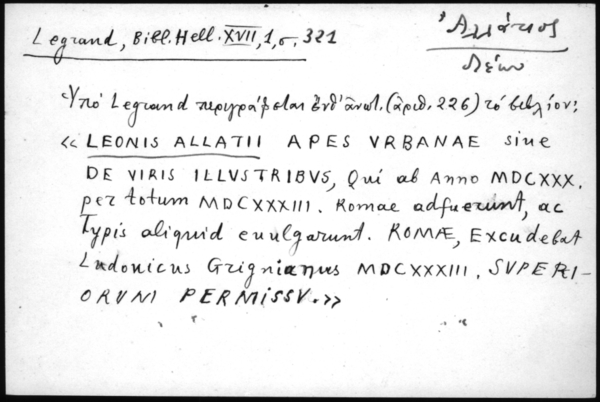 Legrand, Bibl. Hell. XVII, 1, σ. 321
Ἀλλάτιος
Λέων
Ὑπὸ Legrand περιγράφεται ἐνθ' ἀνωτ. (ἀριθ. 226) τὸ βιβλίον:
«LEONIS ALLATII APES VRBANAE siue
DE VIRIS ILLVSTRIBVS, Qui ab Anno MDCXXX.
per totum MDCXXXIII. Romae adfuerunt, ac
Typis aliquid euulgarunt. ROMÆ, Excudebat
Ludonicus Grignianus MDCXXXIII. SVPERI-
ORVM PERMISSV.»